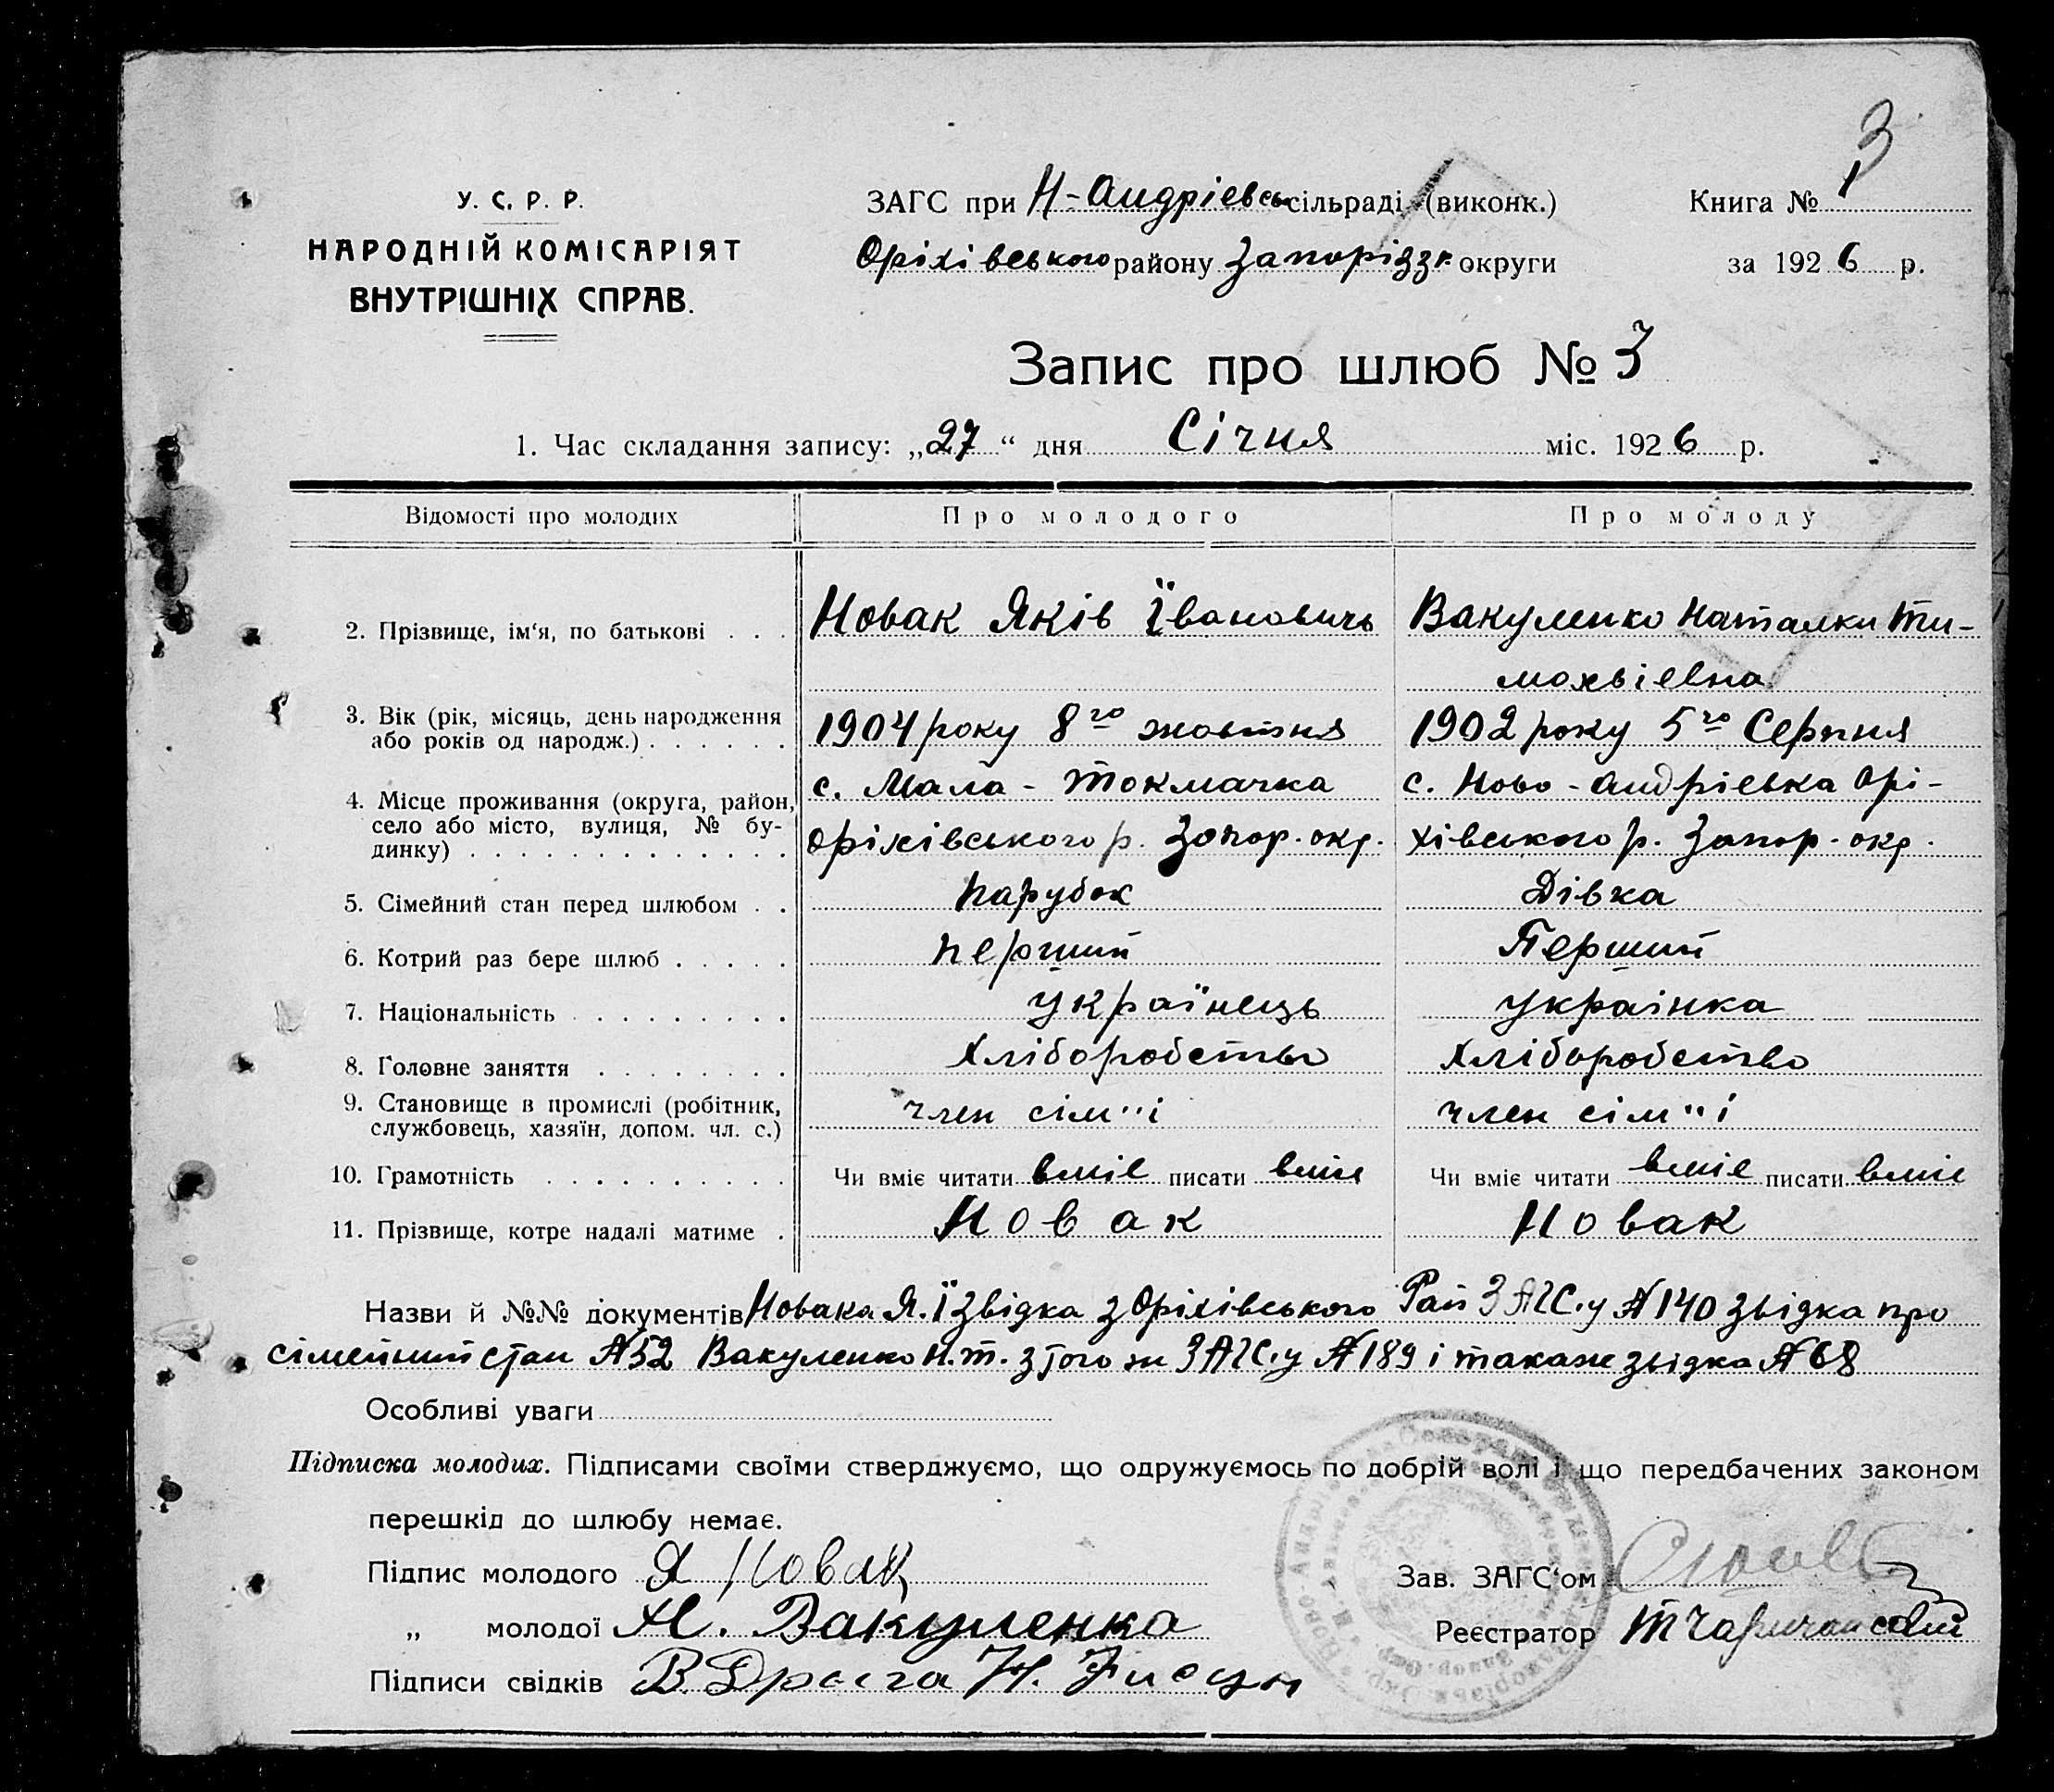 3
У. С. Р. Р.
НАРОДНІЙ КОМІСАРІЯТ
ВНУТРІШНІХ СПРАВ.
ЗАГС при Н-Андріевсь сільраді (виконк.)
Оріхівського району Запорізз. округи
Книга № 1
за 1926 р.
Запис про шлюб № 3
1. Час складання запису: „27“ дня Січня міс. 1926 р.
Відомості про молодих Про молодого Про молоду
2. Прізвище, ім‘я, по батькові . . . Новак Яків Їванович Вакуленко Наталки Ти-
мохвіевна
3. Вік (рік, місяць, день народження
або років од народж.) . . . . . . 1904 року 8го жовтня 1902 року 5го Серпня
4. Місце проживання (округа, район,
село або місто, вулиця, № бу-
динку) . . . . . . . . . . . . .
с. Мала-Токмачка с. Ново-Андріевка Орі-
Оріхівського р. Запор. окр. хівського р. Запор. окр.
5. Сімейний стан перед шлюбом . . Парубок Дівка
6. Котрий раз бере шлюб . . . . . Перший Перший
7. Національність . . . . . . . . . Українець Украінка
8. Головне заняття . . . . . . . . Хліборобство Хліборобство
9. Становище в промислі (робітник,
службовець, хазяїн, допом. чл. с.) член сім"і член сім"і
10. Грамотність . . . . . . . . . . Чи вміє читати вміє писати вміє Чи вміє читати вміє писати вміє
11. Прізвище, котре надалі матиме . Новак Новак
Назви й №№ документів Новака Я.Ї звідка з Оріхівського Рай ЗАГС.у №140 звідка про
сімейний стан №52 Вакуленко Н.Т. з того ж ЗАГС.у №189 і така же звідка №68
Особливі уваги
Підписка молодих. Підписами своїми стверджуємо, що одружуємось по добрій волі і що передбачених законом
перешкід до шлюбу немає.
Підпис молодого Я Новак
„ молодої Н. Вакуленка
Підписи свідків В. Н.
Зав. ЗАГС‘ом
Реєстратор